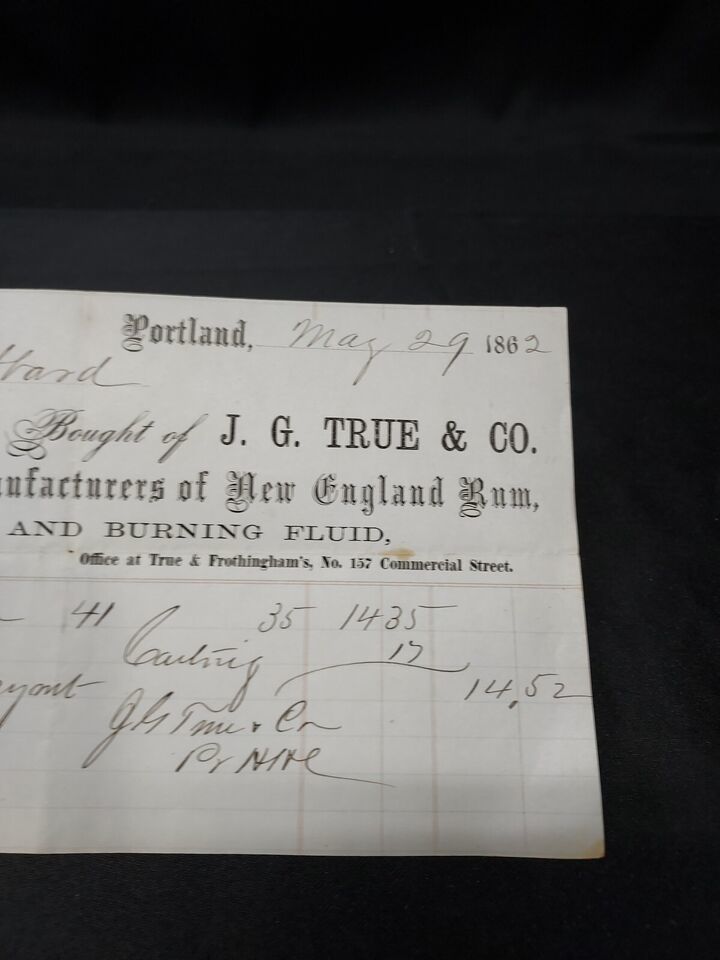 Portland, May 29 1862
Bought of J. G. TRUE & CO.
nufacturers of New England Rum,
AND BURNING FLUID,
Office at True & Frothingham's, No. 157 Commercial Street.
41 35 1435
Carting 17
14,52
J G True & Co
Pr